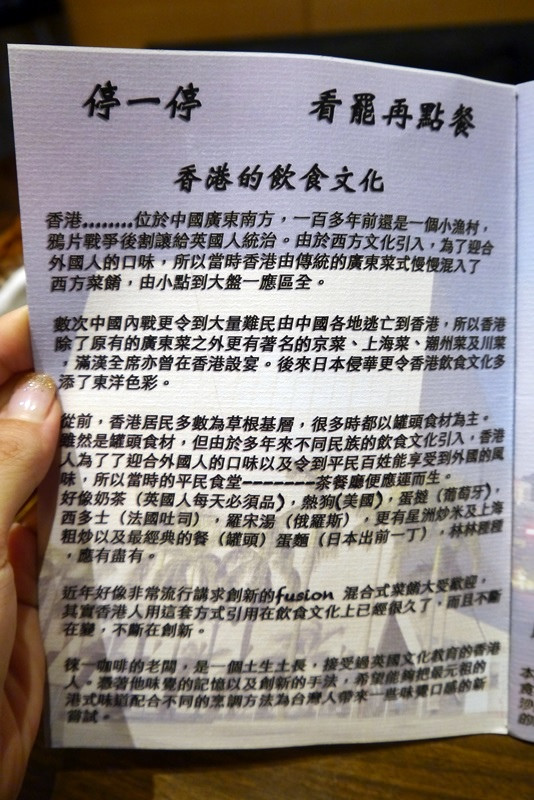 停一停 看罷再點餐
香港的飲食文化
香港........位於中國廣東南方，一百多年前還是一個小漁村，
鴉片戰爭後割讓給英國人統治。由於西方文化引入，為了迎合
外國人的口味，所以當時香港由傳統的廣東菜式慢慢混入了
西方菜餚，由小點到大盤一應區全。
數次中國內戰更令到大量難民由中國各地逃亡到香港，所以香港
除了原有的廣東菜之外更有著名的京菜、上海菜、潮州菜及川菜
，滿漢全席亦曾在香港設宴。後來日本侵華更令香港飲食文化多
添了東洋色彩。
從前，香港居民多數為草根基層，很多時都以罐頭食材為主。
雖然是罐頭食材，但由於多年來不同民族的飲食文化引入，香港
人為了了迎合外國人的口味以及令到平民百姓能享受到外國的風
味，所以當時的平民食堂-------茶餐廳便應運而生。
好像奶茶（英國人每天必須品），熱狗(美國)，蛋撻（葡萄牙），
西多士（法國吐司），羅宋湯（俄羅斯），更有星洲炒米及上海
粗炒以及最經典的餐（罐頭）蛋麵（日本出前一丁），林林種種
，應有盡有。
近年好像非常流行講求創新的fusion 混合式菜餚大受歡迎，
其實香港人用這套方式引用在飲食文化上已經很久了、而且不斷
在變，不斷在創新。
銖一咖啡的老闆，是一個土生土長，接受過英國文化教育的香港
人。憑著他味覺的記憶以及創新的手法，希望能夠把最元祖的
港式味道配合不同的烹調方法為台灣人帶來一些味覺口感的新
嘗試。
本
食
沙
的